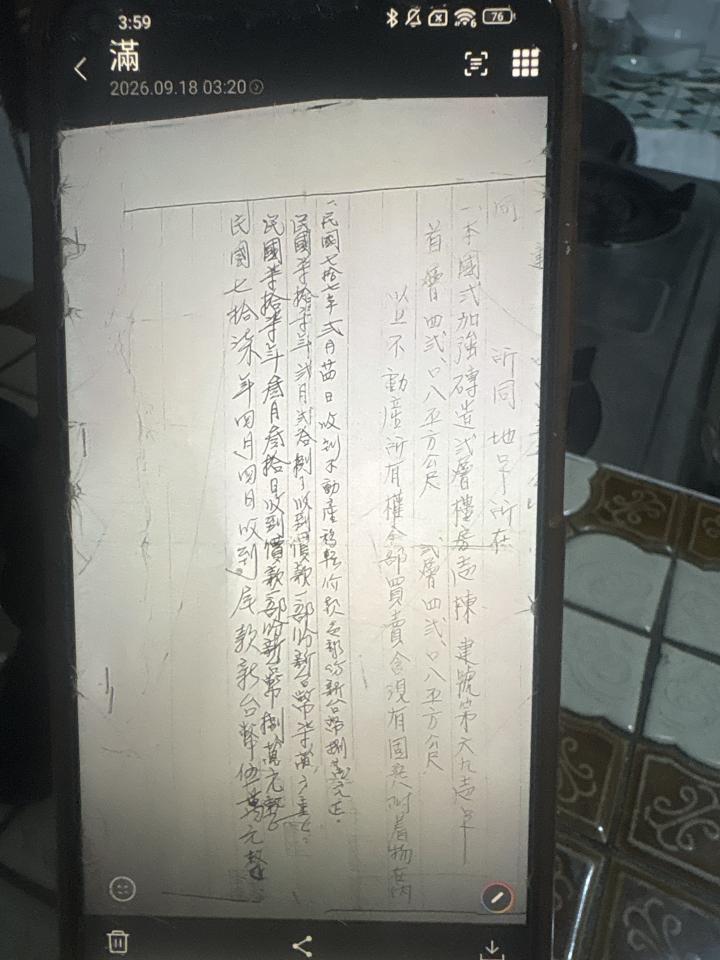 3:59
76
滿
2026.09.18 03:20
同
所同地号所在
一本國式加強磚造弍層樓房壱棟 建號第六九壱号
首層四弍.○八平方公尺 弍層四弍.○八平方公尺
以上不動產所有權全部買賣含現有固定附着物在內
一民國七拾七年弍月廿四日收到不動產移轉價款之部份新台幣捌萬元正.
民國柒拾柒年弍月弍拾捌日收到價款一部份新台幣柒萬元
民國柒拾柒年叁月叁拾日收到價款一部份新台幣捌萬元整
民國七拾柒年四月四日收到尾款新台幣伍萬元整